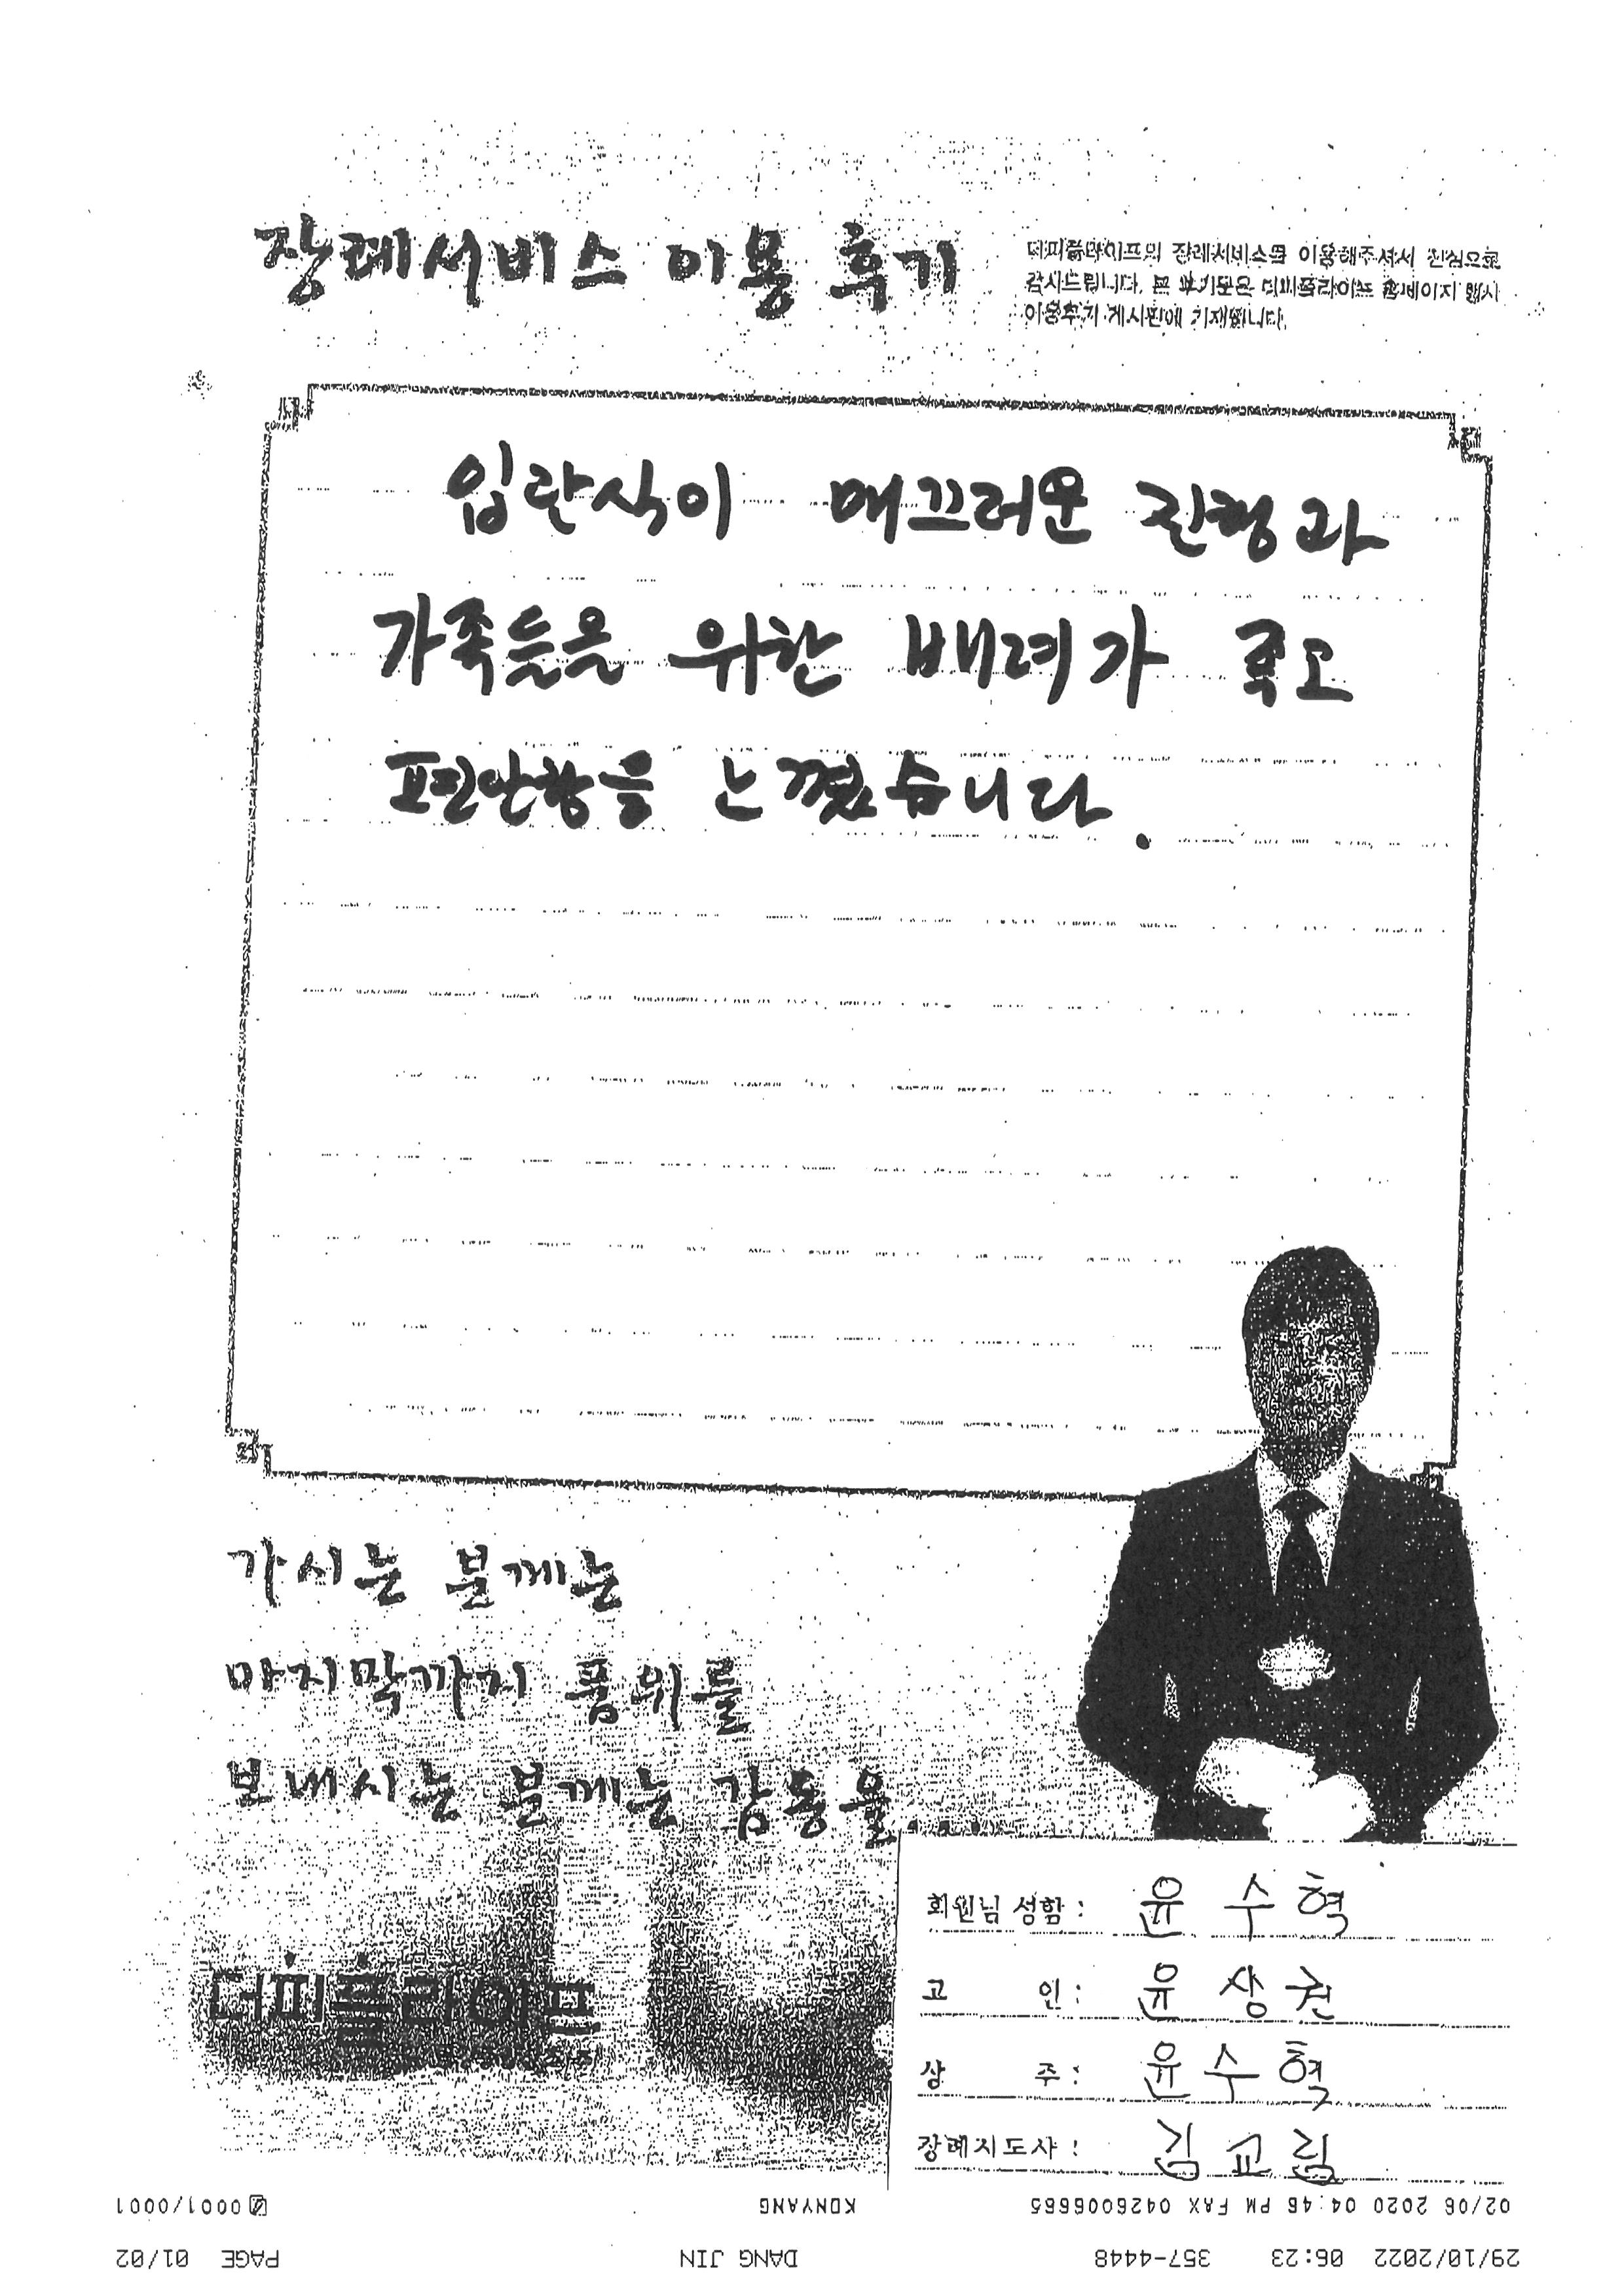 장례서비스 이용 후기
더피플라이프의 장례서비스를 이용해주셔서 진심으로
감사드립니다. 본 후기문은 더피플라이프 홈페이지 행사
이용후기 게시판에 기재됩니다.
입관식이 매끄러운 진행과
가족들을 위한 배려가 좋고
편안함을 느꼈습니다.
가시는 분께는
마지막까지 품위를
보내시는 분께는 감동을....
더피플라이프
회원님 성함 : 윤수혁
고 인 : 윤상권
상 주 : 윤수혁
장례지도사 : 김교림
02/06 2020 04:46 PM FAX 0426006665 KONYANG 0001/0001
29/10/2022 06:23 357-4448 DANG JIN PAGE 01/02